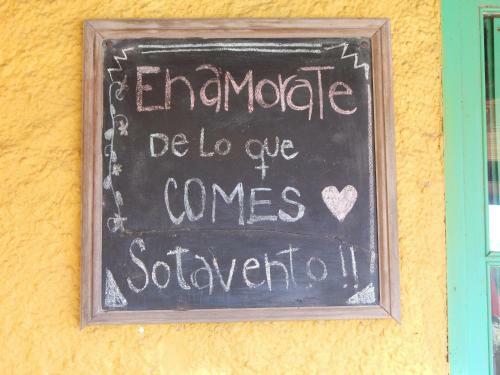 Enamorate
De Lo que
COMES
Sotavento!!